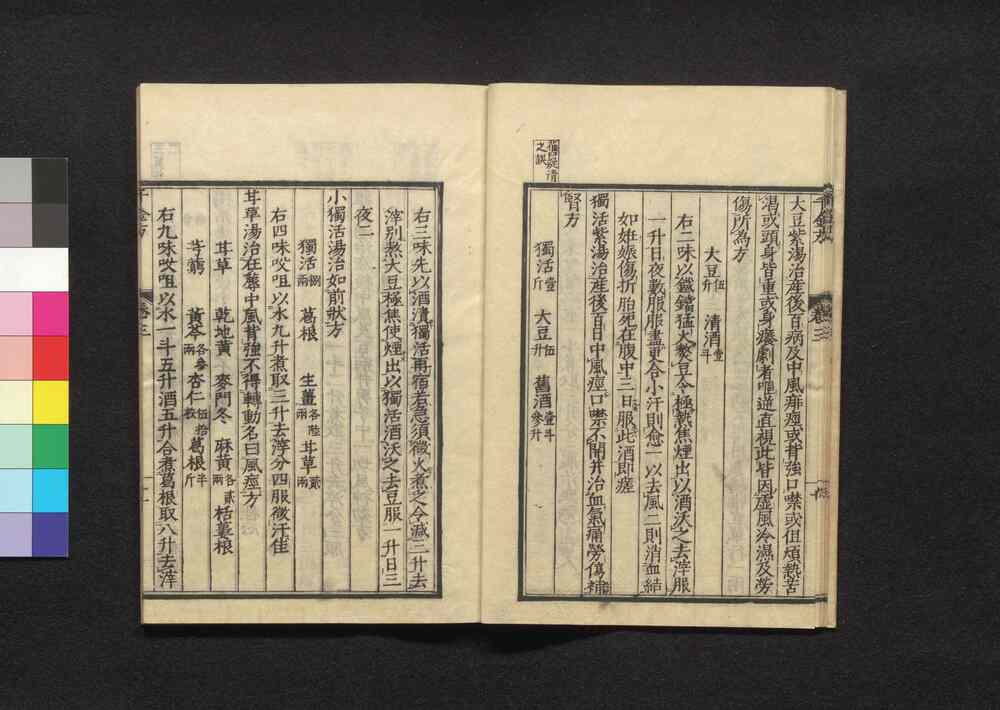 大豆紫湯治産後百病及中風痱痙或背強口噤或但煩熱苦
渴或頭身皆重或身癢劇者嘔逆直視此皆因虛風冷濕及勞
傷所為方
大豆伍升 清酒壹斗
右二味以鐵鐺猛火熬豆令極熱焦煙出以酒沃之去滓服
一升日夜數服服盡更合小汗則愈一以去風二則消血結
如妊娠傷折胎死在腹中三日服此酒即瘥
獨活紫湯治產後百日中風痙口噤不開并治血氣痛勞傷補
腎方
獨活壹斤 大豆伍升 舊酒壹斗參升
右三味先以酒漬獨活再宿若急須微火煮之令減三升去
滓別熬大豆極焦使煙出以獨活酒沃之去豆服一升日三
夜二
小獨活湯治如前狀方
獨活捌兩 葛根 生薑各陸兩 甘草貳兩
右四味㕮咀以水九升煮取三升去滓分四服微汗佳
甘草湯治在蓐中風背強不得轉動名曰風痙方
甘草 乾地黃 麥門冬 麻黃各貳兩 栝蔞根
芎藭 黃芩各參兩 杏仁伍拾枚 葛根半斤
右九味㕮咀以水一斗五升酒五升合煮葛根取八升去滓
千金方
卷三